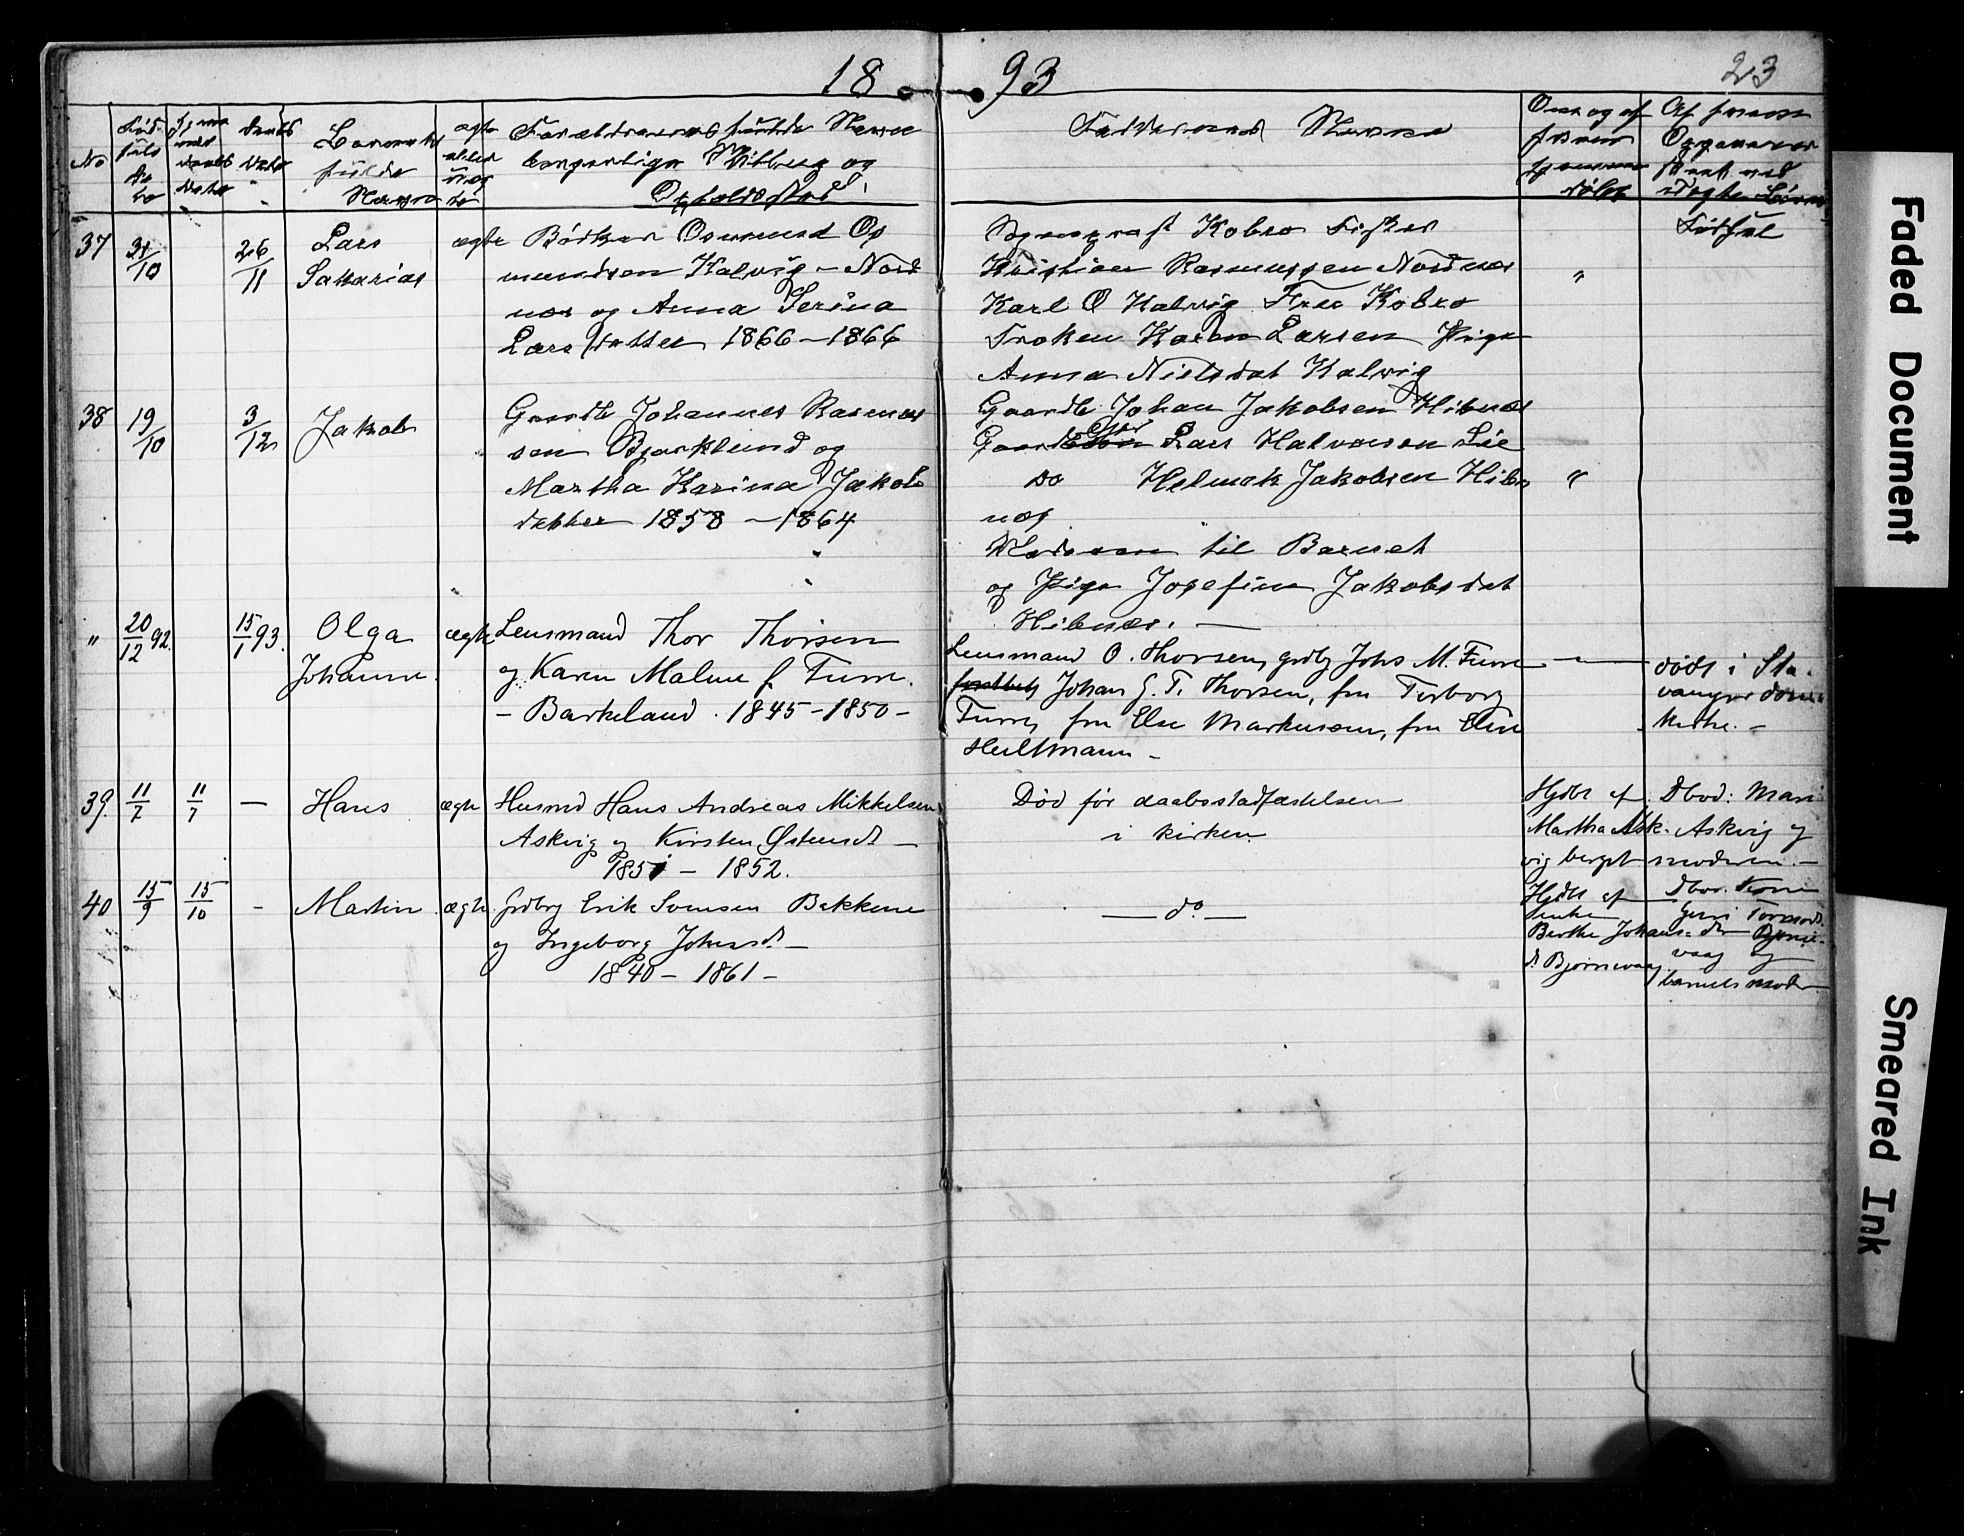 18 93
23
No
Fødselsdato
Daabsdato
Barnets fulde Navn
ægte eller uægte
Forældrenes fulde Navn borgerlige Stilling og Opholdssted
Faddernes Navne
Om og af hvem
37 31/10 26/11 Lars Sakarias ægte
Bødker Osmund Os
mundsen Kalvig - Nord
nes og Anna Serina
Lars datter 1866 - 1866
Sogneprest Kobro Fisker
Kristian Rasmussen Nordnes
Karl O Kalvig Frue Kobro
Frøken Karen Larsen Pige
Anna Nielsdat Kalvig
"
38 19/10 3/12 Jakob
Gaardb Johannes Rasmus
sen Bjørklund og
Martha Karina Jakobs
datter 1858 - 1864
Gaardb. Johan Jakobsen Hibnes
Lars Halvorsen Lie
Do Helmik Jakobsen Hib
nes
Moderen til Barnet
og Pige Josefine Jakobsdat
Hibnes. -
"
" 20/12 92. 15/1 93. Olga Johanne ægte
Lensmand Thor Thorsen
og Karen Malene f. Furre.
- Barkeland . 1845 - 1850 -
Lensmand O. Thorsen, grdbg Johs M. Furre
Johan G. T. Thorsen, fru Torborg
Furre, fru Else Markussen, fru Elise
Heltmann -
døbt i Sta-
vanger dom-
kirke. -
39. 11/7 11/7 - Hans ægte
Husmd Hans Andreas Mikkelsen
Askvig og Kirsten Østensdt -
1851 - 1852.
Død før daabsstadfæstelsen
i kirken.
Hjdbt af
Martha Ask-
vig
Dbvd: Mari
Askvig og
moderen. -
40 15/9 15/10 - Martin ægte
grdbrg Erik Svensen Bakkene
og Ingeborg Johnsd. -
1840 - 1861 -
- do -
Hjdbt af
enke
Berthe Johans-
d. Bjørnevaag
Dbvd.
Bjørne-
vaag og
barnets moder
Faded Document
Smeared Ink